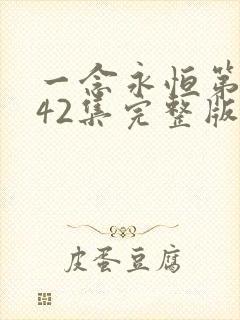 一念永恒第
42集完整版
皮蛋豆腐